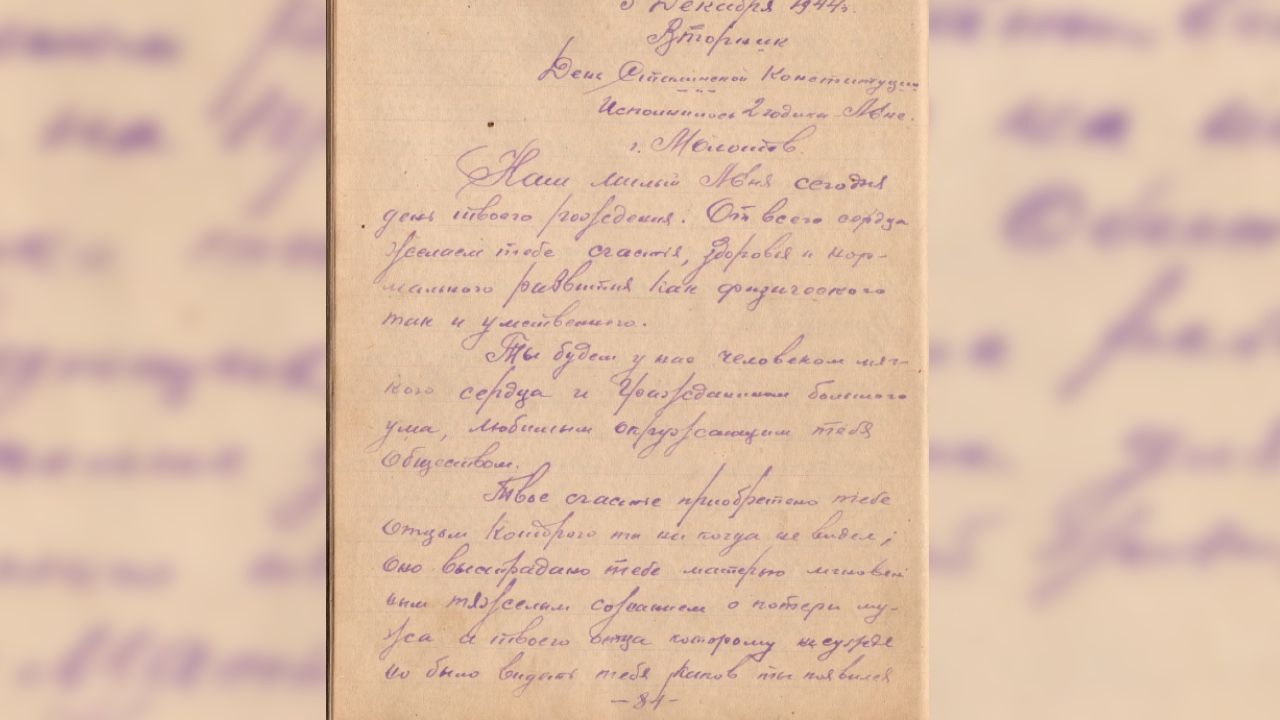 5 Декабря 1944г.
Вторник
День Сталинской Конституции
Исполнилось 2 годика Лёне.
г. Молотов.
Наш милый Лёня сегодня
день твоего рождения. От всего сердца
желаем тебе счастья, здоровья и нор-
мального развития как физического
так и умственного.
Ты будеш у нас человеком мяг-
кого сердца и Гражданином большого
ума, любимым окружающим тебя
обществом.
Твое счастье приобретено тебе
отцом которого ты ни когда не видел;
оно выстрадано тебе матерью мгновен
ным тяжелым сознанием о потери му-
жа и твоего отца которому не сужде
но было видать тебя каков ты появился
-84-